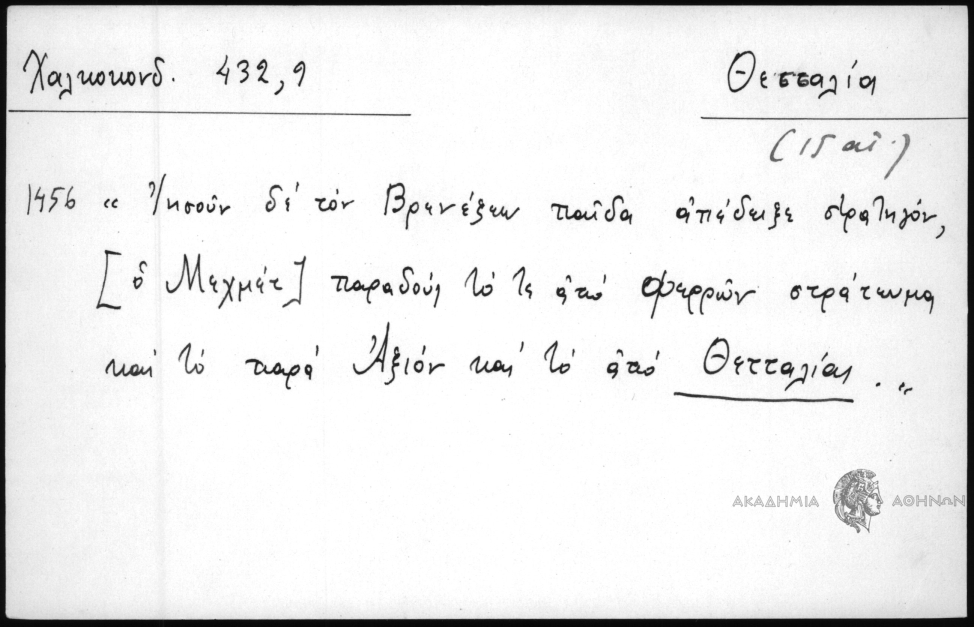 Χαλκοκονδ. 432,9
Θεσσαλία
(15 αἰ.)
1456 « Ἰησοῦν δέ τόν Βρενέζεω παῖδα ἀπέδειξε στρατηγόν,
[ὁ Μεχμέτ] παραδούς τό τε ἀπό Φερρῶν στράτευμα
καί τό παρά Ἀξιόν καί τό ἀπό Θετταλίας. »
ΑΚΑΔΗΜΙΑ ΑΘΗΝΩΝ